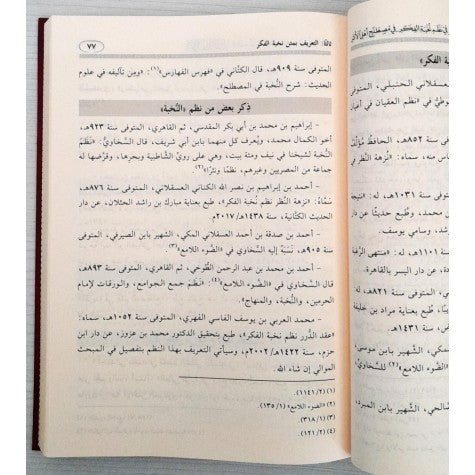 ثالثًا: التعريف بمتن نخبة الفكر
٧٧
المتوفى سنة ٩٠٩هـ، قال الكتَّاني في «فهرس الفهارس»(١): «ومِن تآليفه في علوم
الحديث: شرح النُّخبة في المصطلح».
ذِكر بعض من نظم «النُّخبة»
– إبراهيم بن محمد بن أبي بكر المقدسي، ثم القاهري، المتوفى سنة ٩٢٣هـ،
أخو الكمال محمد، ويُعرف كل منهما بابن أبي شريف، قال السَّخاوي: «نَظَمَ
النُّخبة لشيخنا في نيف ومئة بيت، وهي على رويِّ الشَّاطبية وبحرها، وقرَّضها له
جماعة من المصريين وغيرهم، نظمًا ونثرًا»(٢).
– أحمد بن إبراهيم بن نصر الله الكناني العسقلاني، المتوفى سنة ٨٧٦هـ،
سَمَّاهُ: «نزهة النظر نظم نخبة الفكر»، طبع بعناية مبارك بن راشد الحثلان، عن دار
الحديث الكتَّانية، سنة ١٤٣٨هـ/٢٠١٧م.
– أحمد بن صدقة بن أحمد العسقلاني المكي، الشهير بابن الصيرفي، المتوفى
سنة ٩٠٥هـ، نَسَبَهُ إليه السَّخاوي في «الضوء اللامع»(٣).
– أحمد بن محمد بن عبد الرحمن الطُّوخي، ثم القاهري، المتوفى سنة ٨٩٣هـ،
قال السَّخاوي في «الضوء اللامع»(٤): «نَظَم جمع الجوامع، والورقات لإمام
الحرمين، والنُّخبة، والمنهاج».
– محمد العربي بن يوسف الفاسي الفهري، المتوفى سنة ١٠٥٢هـ، سماه:
«عقد الدُّرر نظم نخبة الفكر»، طبع بتحقيق الدكتور محمد بن عزوز، عن دار ابن
حزم، سنة ١٤٢٢هـ/٢٠٠٢م، وسيأتي التعريف بهذا النظم بتفصيل في المبحث
الموالي إن شاء الله.
(١) (٢/ ١١٤١).
(٢) «الضوء اللامع» (١/ ١٣٥).
(٣) (١/ ٣١٨).
(٤) (٢/ ١٢١).
العسقلاني الحنبلي، المتوفى
«نظم العقيان في أعيان
سنة ٨٥٢هـ، الحافظُ
سماه: «نزهة النظر في
سنة ١٠٣١هـ، له:
وسامي يوسف.
عن دار اليسر بالقاهرة.
سنة ١٤٣١هـ.
المكي، الشهير بابن موسى،
الشهير بابن المبرد،